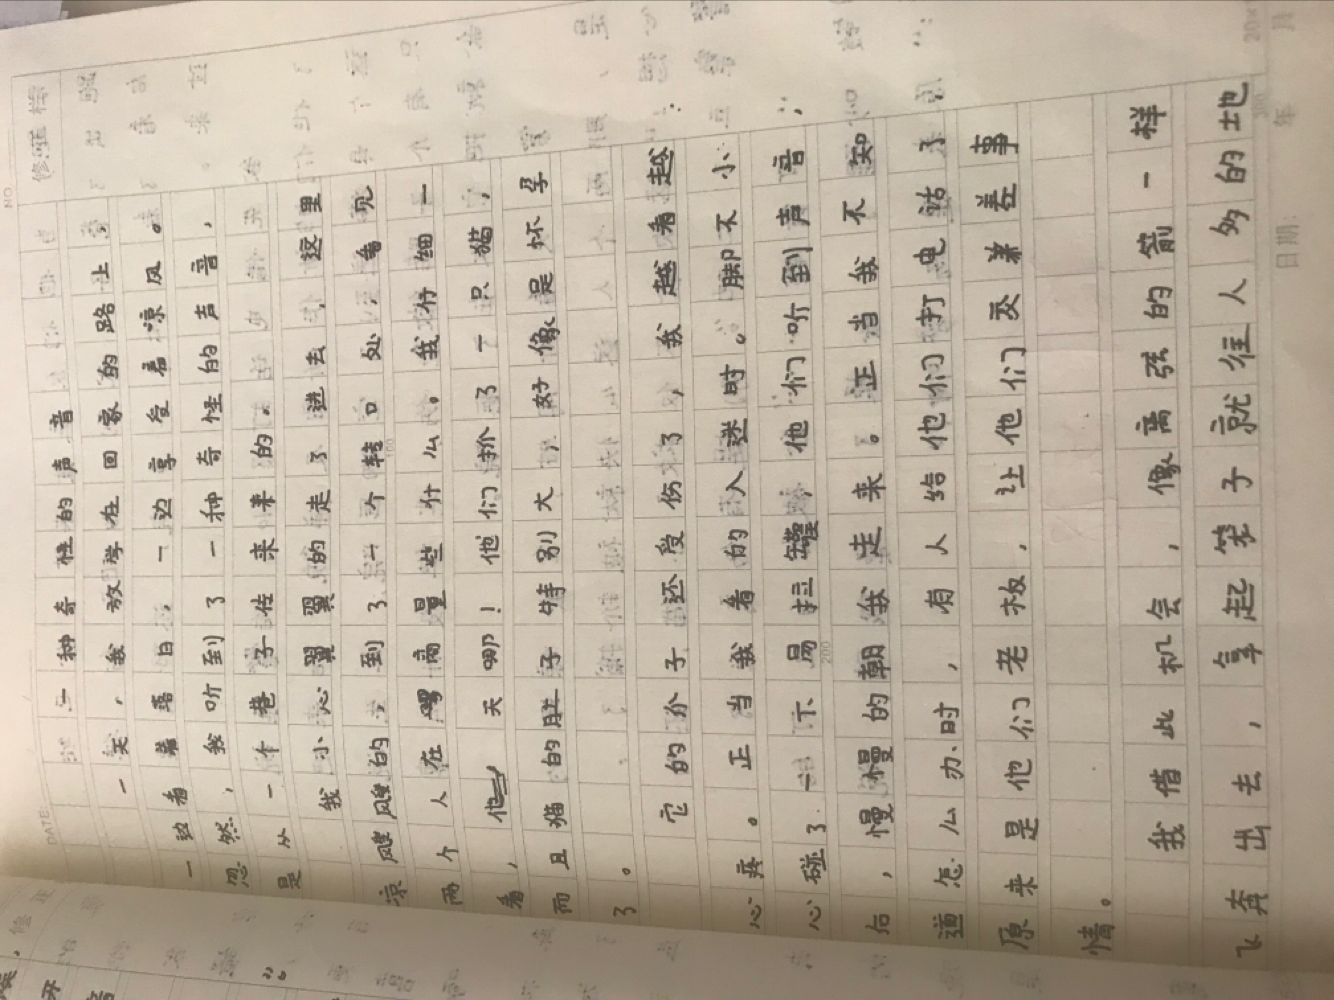 一种奇怪的声音
一天，我放学在回家的路上
一边看着落日，一边享受着凉风。
忽然，我听到了一种奇怪的声音，
是从一个巷子传来来的。
我小心翼翼的走了进去，这里
凉飕飕的，到了一个转口处，看见
两个人在商量些什么。我仔细一
看，天哪！他们抓了一只猫，
而且猫的肚子特别大，好像是怀孕
了。
它的爪子还受伤了，我越看越
心疼。正当我看的入迷时。脚不小
心碰了一下易拉罐，他们听到声音
后，慢慢的朝我走来。正当我不知
道怎么办时，有人给他们打电话了
原来是他们老板，让他们交差事
情。
我借此机会，像离弦的箭一样
飞奔出去，拿起笼子就往人多的地
DATE
NO
200
日期:
年
月